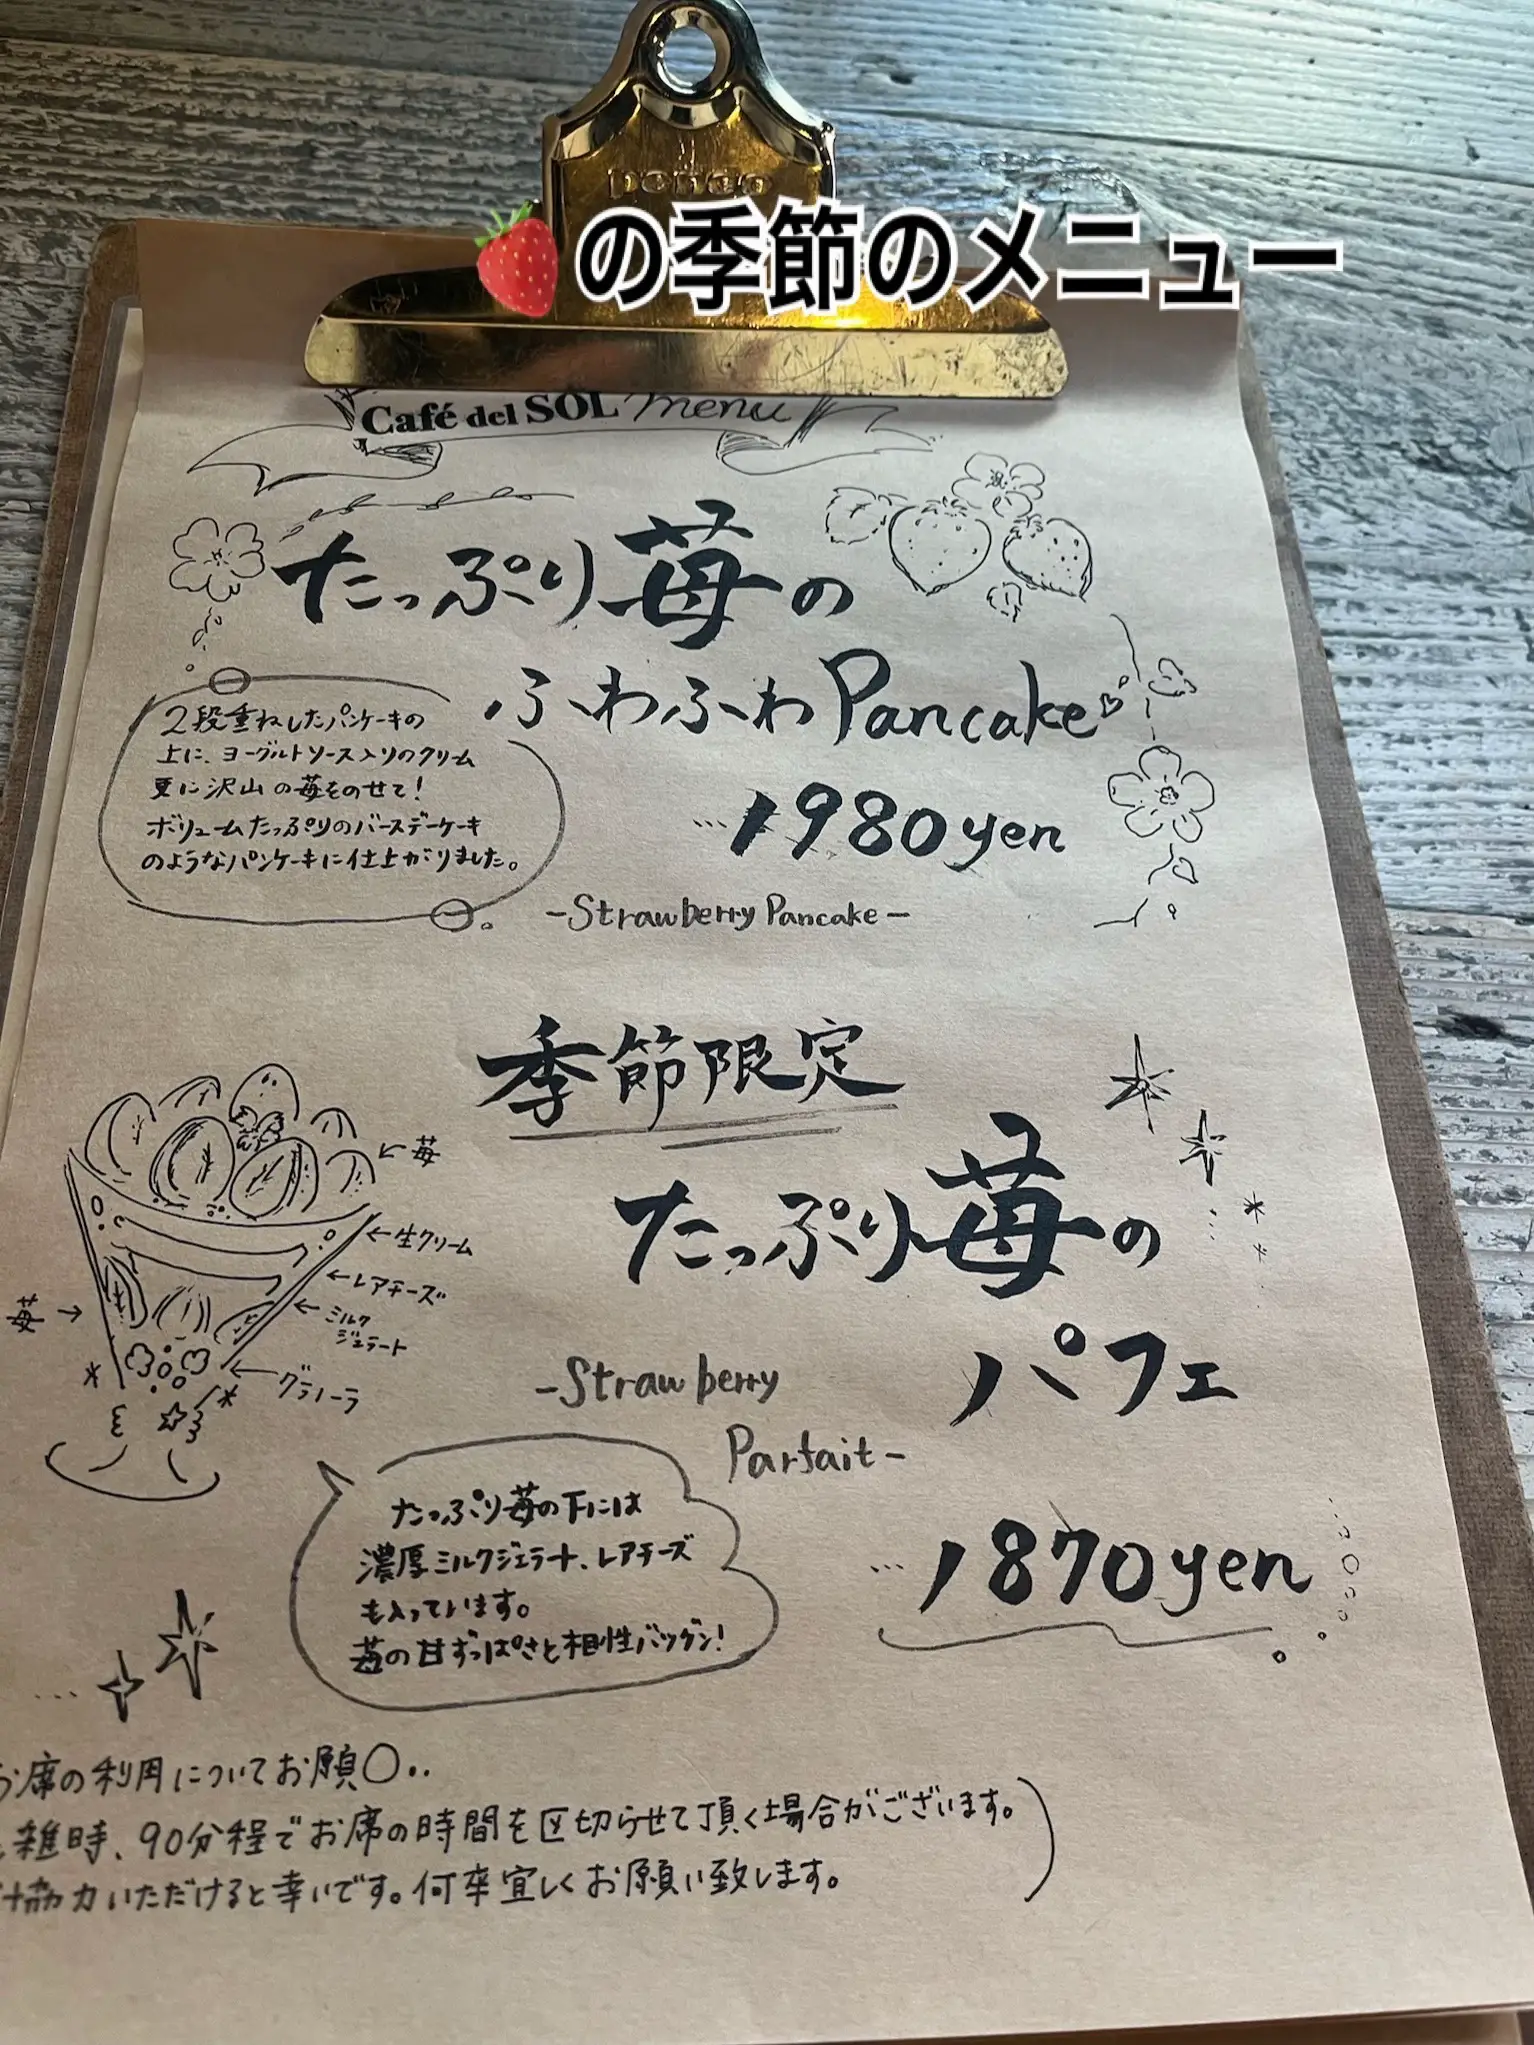 penco
🍓の季節のメニュー
Café del SOL menu
たっぷり苺の
ふわふわPancake
2段重ねしたパンケーキの
上に、ヨーグルトソース入りのクリーム
更に沢山の苺をのせて!
ボリュームたっぷりのバースデーケーキ
のようなパンケーキに仕上がりました。
…1980yen
-Strawberry Pancake-
季節限定
たっぷり苺の
パフェ
←苺
←生クリーム
←レアチーズ
←ミルク
ジェラート
苺→
←グラノーラ
-Strawberry
Parfait-
…1870yen
たっぷり苺の下には
濃厚ミルクジェラート、レアチーズ
も入っています。
苺の甘ずっぱさと相性バツグン!
お席の利用についてお願〇..
雑時、90分程でお席の時間を区切らせて頂く場合がございます。
協力いただけると幸いです。何卒宜しくお願い致します。